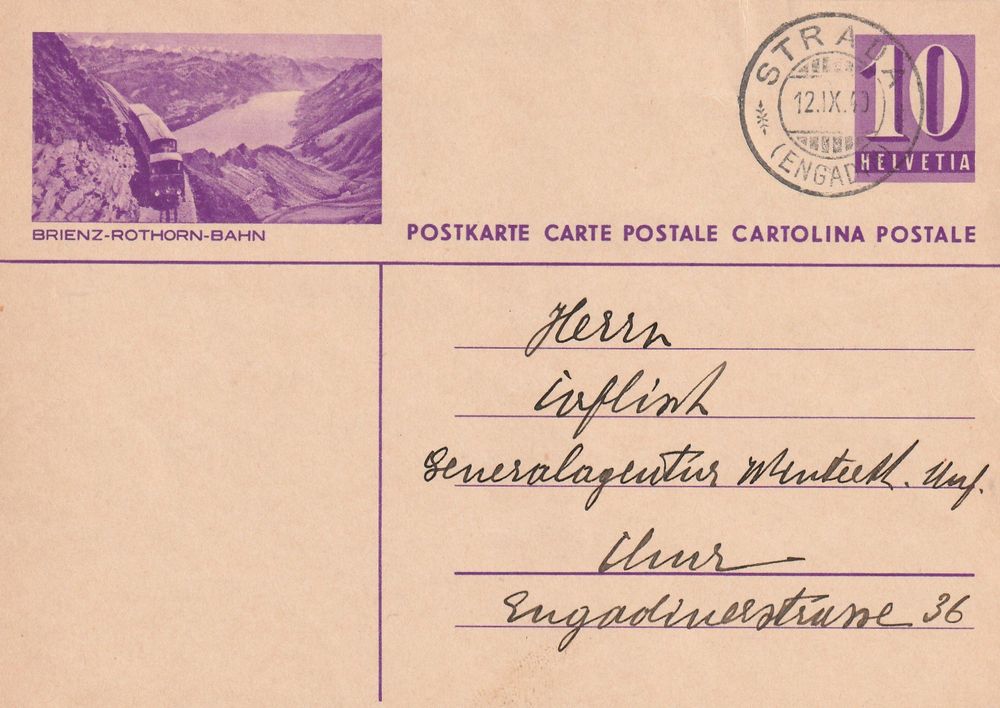 BRIENZ-ROTHORN-BAHN
STRADA
12.IX.40
(ENGADIN)
10
HELVETIA
POSTKARTE CARTE POSTALE CARTOLINA POSTALE
Herrn
Caflisch
Generalagentur Winterth. Unf.
Chur
Engadinerstrasse 36